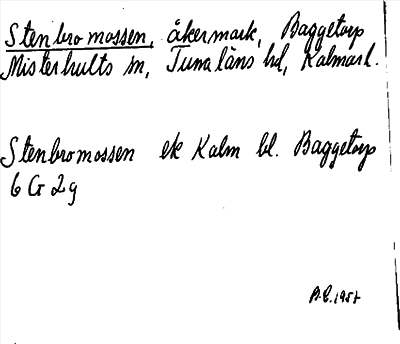 Stenbromossen, åkermark, Baggetorp
Misterhults sn, Tuna läns hd, Kalmar l.
Stenbromossen ek Kalm bl. Baggetorp
6 G 2 g
1957